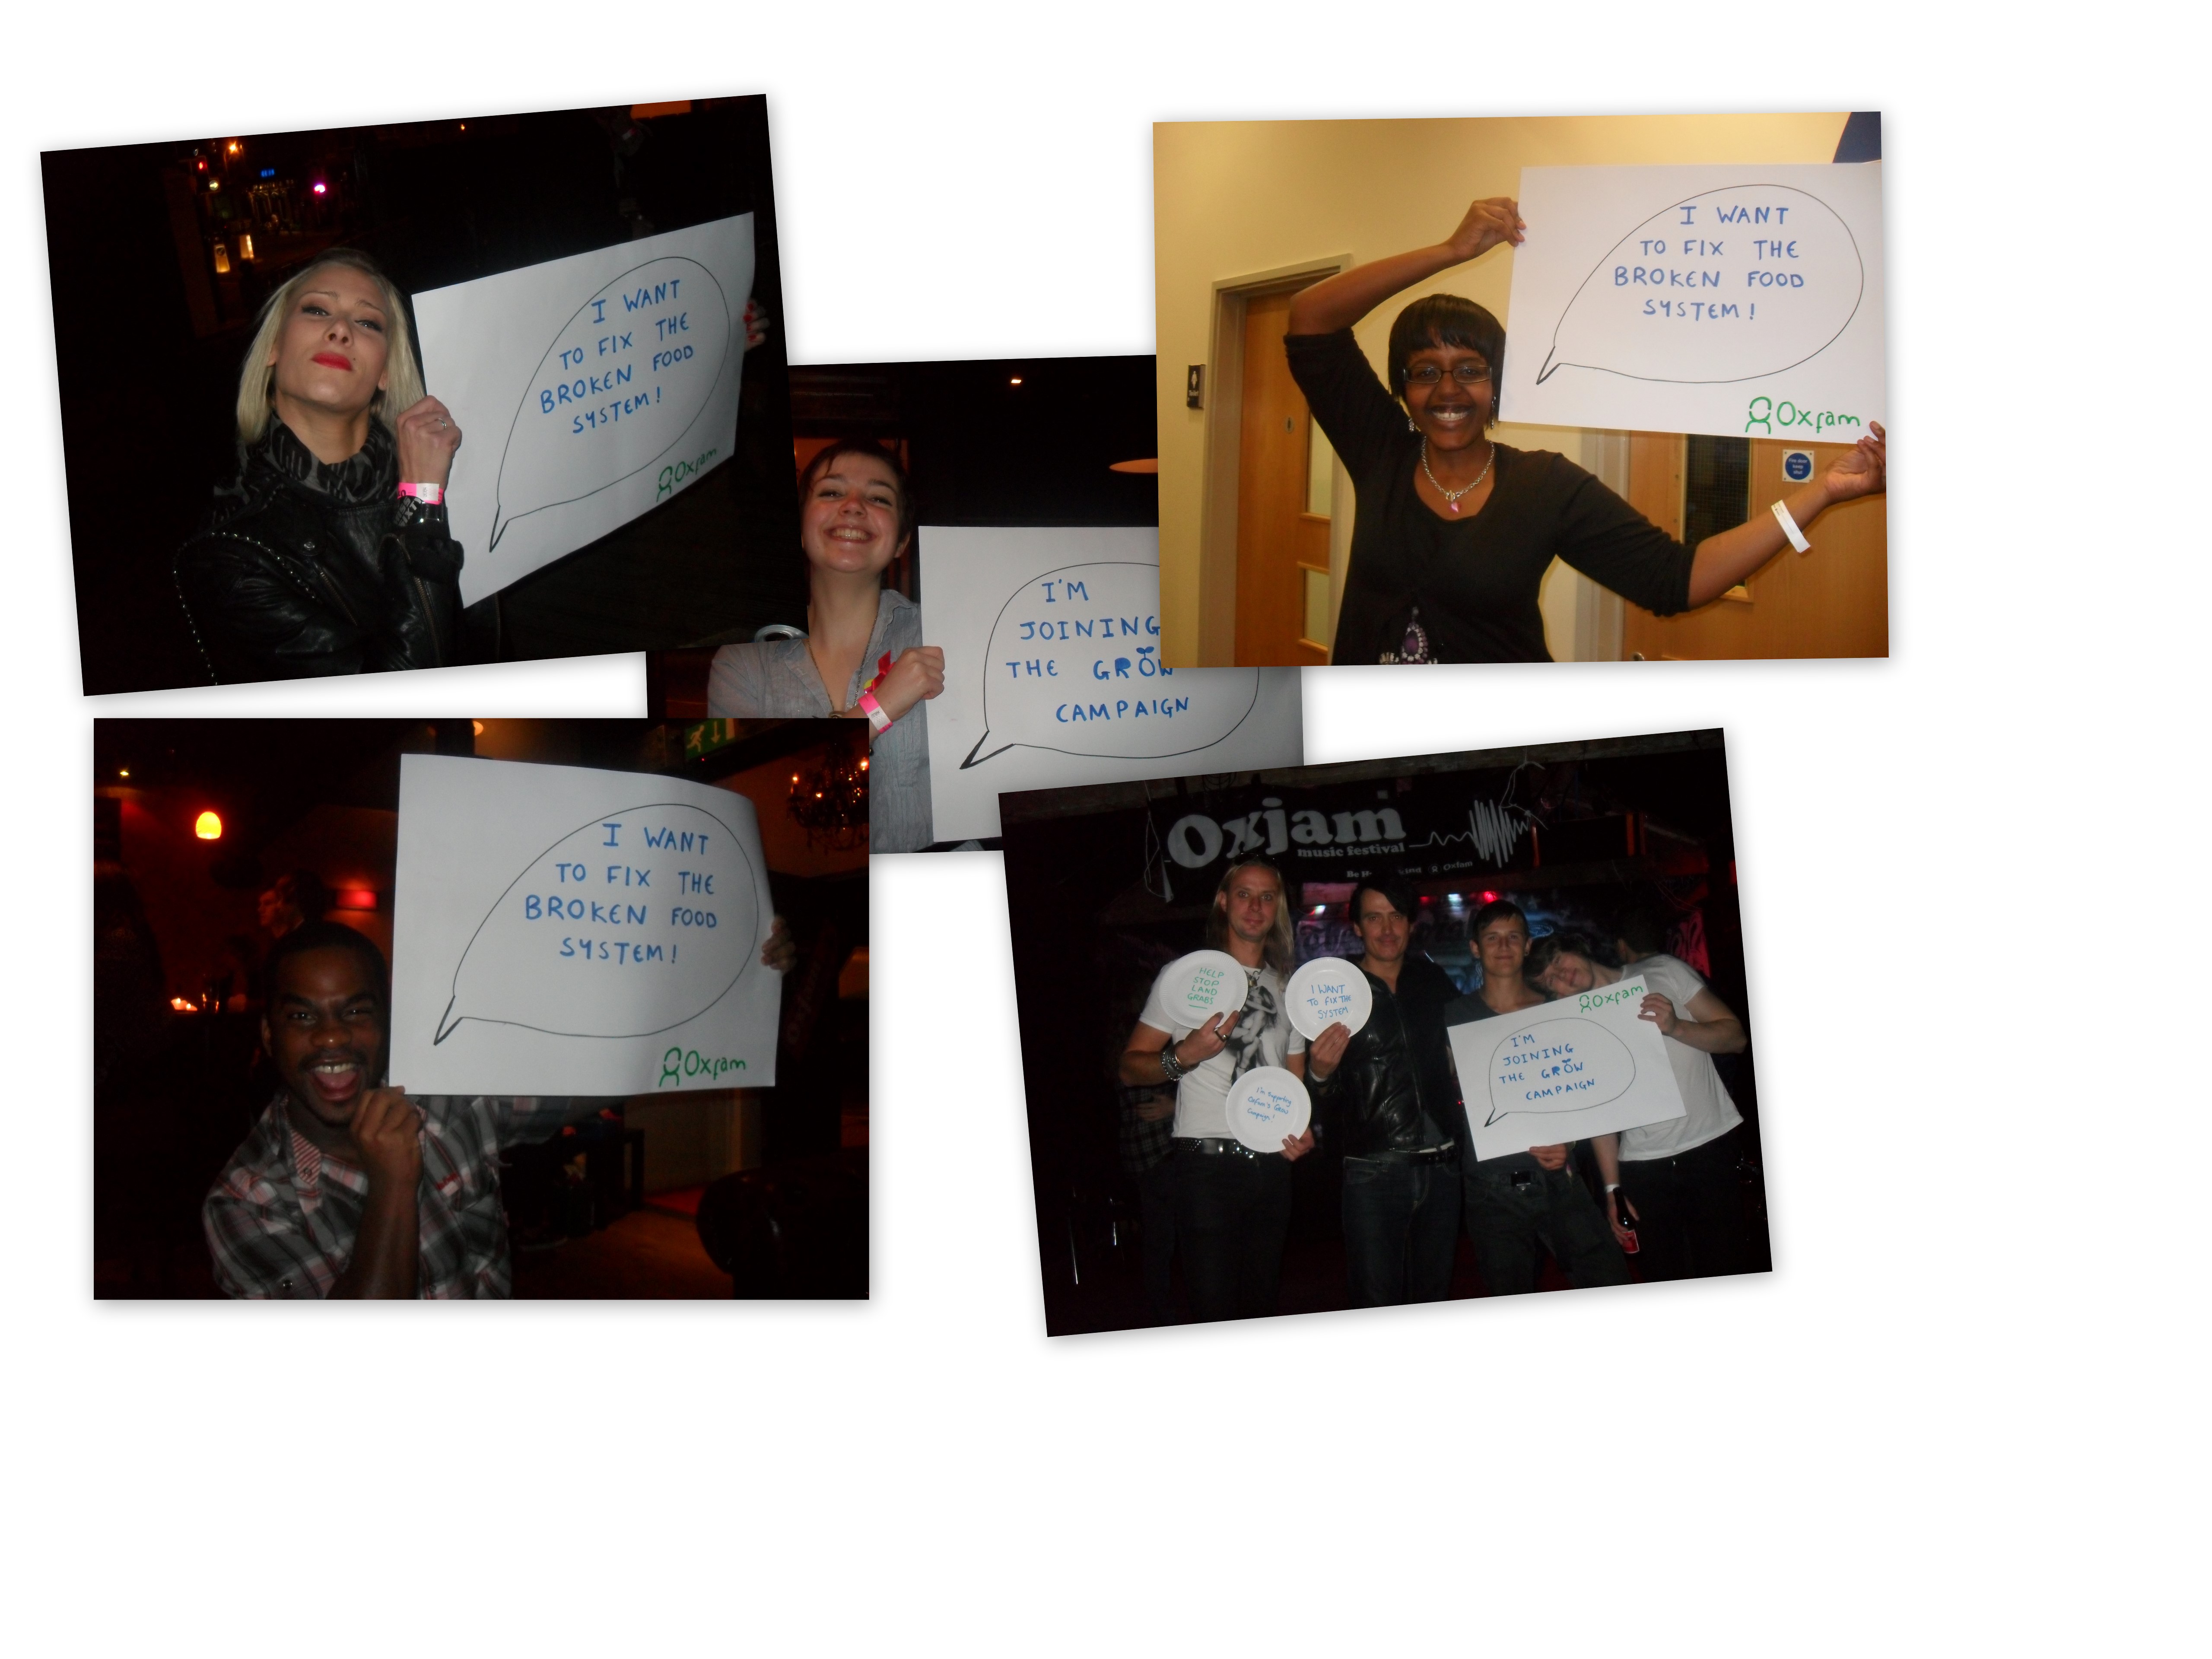 I WANT
TO FIX THE
BROKEN FOOD
SYSTEM!
Oxfam
I'M
JOINING
THE GROW
CAMPAIGN
I WANT
TO FIX THE
BROKEN FOOD
SYSTEM!
Oxfam
I WANT
TO FIX THE
BROKEN FOOD
SYSTEM!
Oxfam
Oxjam
music festival
Be
Oxfam
HELP
STOP
LAND
GRABS
I WANT
TO FIX THE
SYSTEM
I'm supporting
Oxfam's Grow
Campaign!
Oxfam
I'M
JOINING
THE GROW
CAMPAIGN